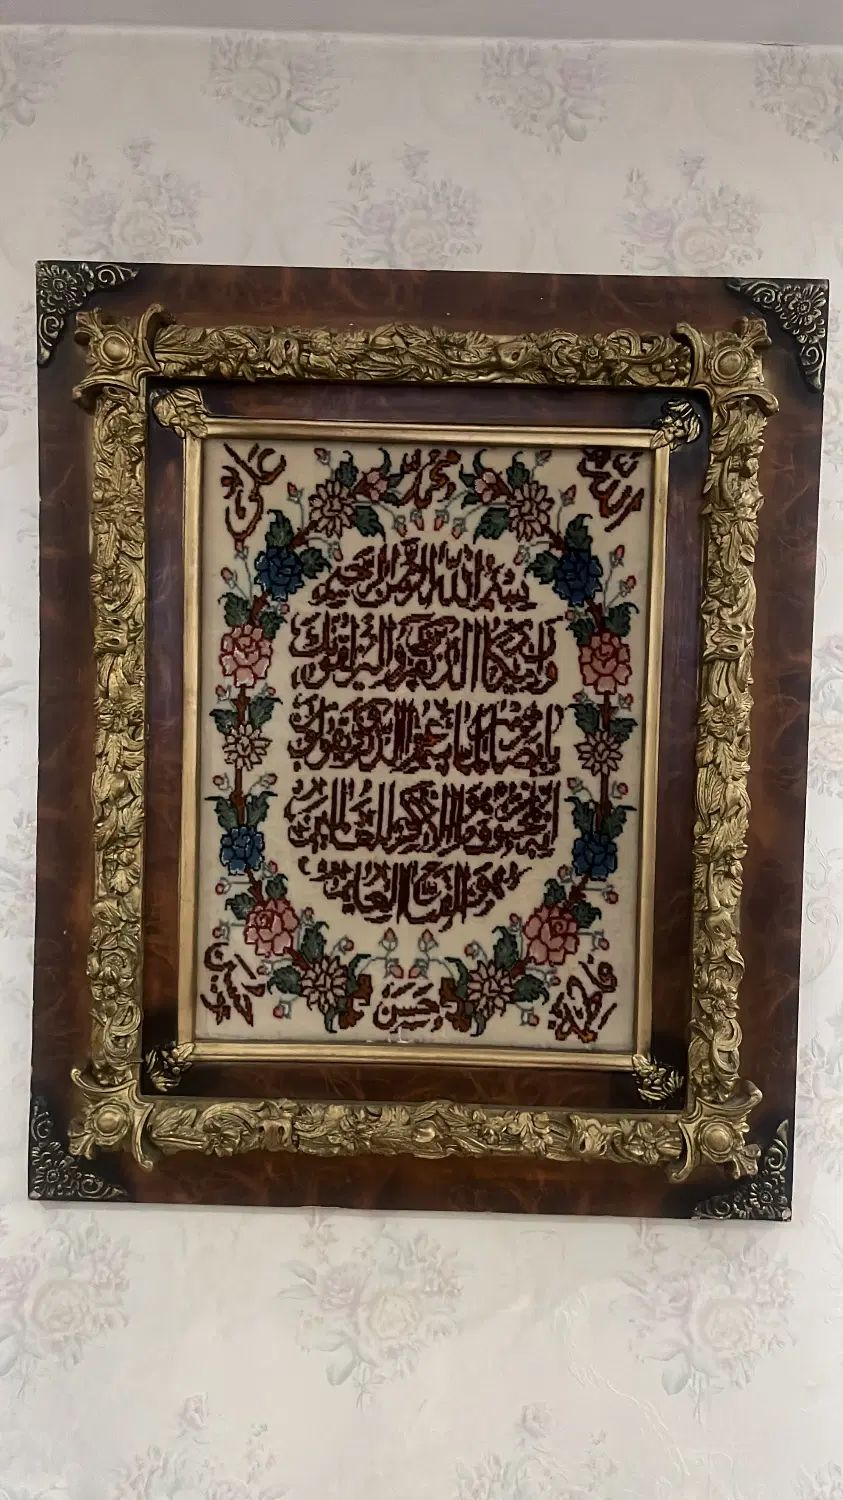 الله
محمد
علی
بسم الله الرحمن الرحیم
وان یکاد الذین کفروا لیزلقونک
بابصارهم لما سمعوا الذکر و یقولون
انه لمجنون و ما هو الا ذکر للعالمین
وهو الفتاح العلیم
فاطمة
حسن
حسین